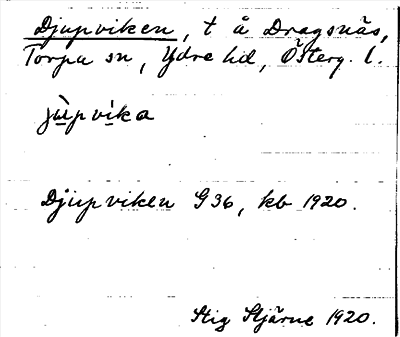 Djupviken, t å Dragsnäs,
Torpa sn, Ydre hd, Österg. l.
jùpvika
Djupviken G36, kb 1920.
Stig Stjärne 1920.